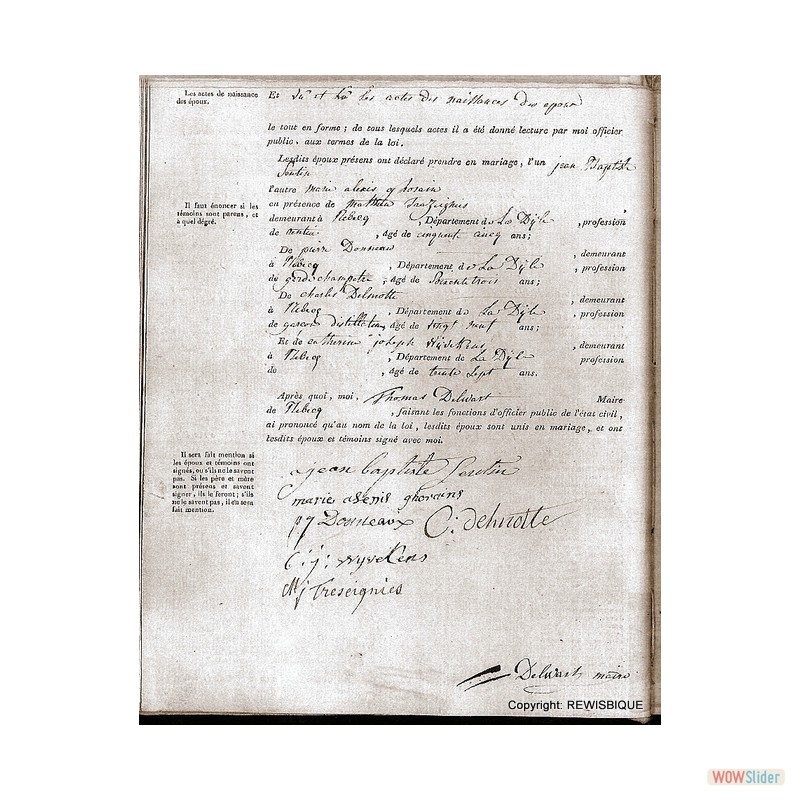 Les actes de naissance
des époux.
Et vu et lu les actes des naissances des epoux
le tout en forme ; de tous lesquels actes il a été donné lecture par moi officier
public, aux termes de la loi.
Lesdits époux présens ont déclaré prendre en mariage, l'un jean Baptiste
Sentin
l'autre marie alexis ghorain
Il faut énoncer si les
témoins sont parens, et
à quel dégré.
en présence de mathieu
demeurant à Rebecq , Département de La Dÿle , profession
de rentier , âgé de cinquant cincq ans ;
De pierre Donneaux , demeurant
à Rebecq , Département de La Dÿle , profession
de gardechampetre , âgé de Soixentetrois ans ;
De charles Delmotte , demeurant
à Rebecq , Département de La Dÿle , profession
de garcon distillateur, âgé de vingt neuf ans ;
Et de catherine joseph Wÿvekens , demeurant
à Rebecq , Département de La Dÿle profession
de , âgé de trente sept ans.
Après quoi, moi, Thomas Delwart Maire
de Rebecq , faisant les fonctions d'officier public de l'état civil,
ai prononcé qu'au nom de la loi, lesdits époux sont unis en mariage, et ont
lesdits époux et témoins signé avec moi.
Il sera fait mention si
les époux et témoins ont
signés, ou s'ils ne le savent
pas. Si les père et mère
sont présens et savent
signer, ils le feront ; s'ils
ne le savent pas, il en sera
fait mention.
jean baptiste Sentin
marie alexis ghorains
p j Donneaux C : delmotte
C : j : wyvekens
M j Treseignies
Delwart maire
Copyright: REWISBIQUE
WOWSlider